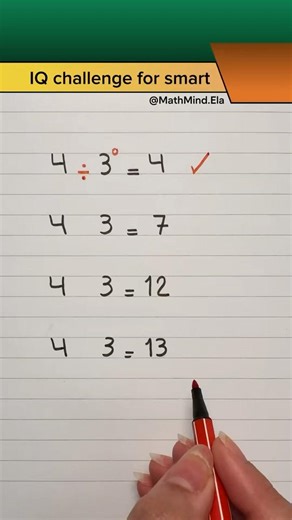 IQ challenge for smart
@MathMind.Ela
4 ÷ 3⁰ = 4 ✓
4 3 = 7
4 3 = 12
4 3 = 13